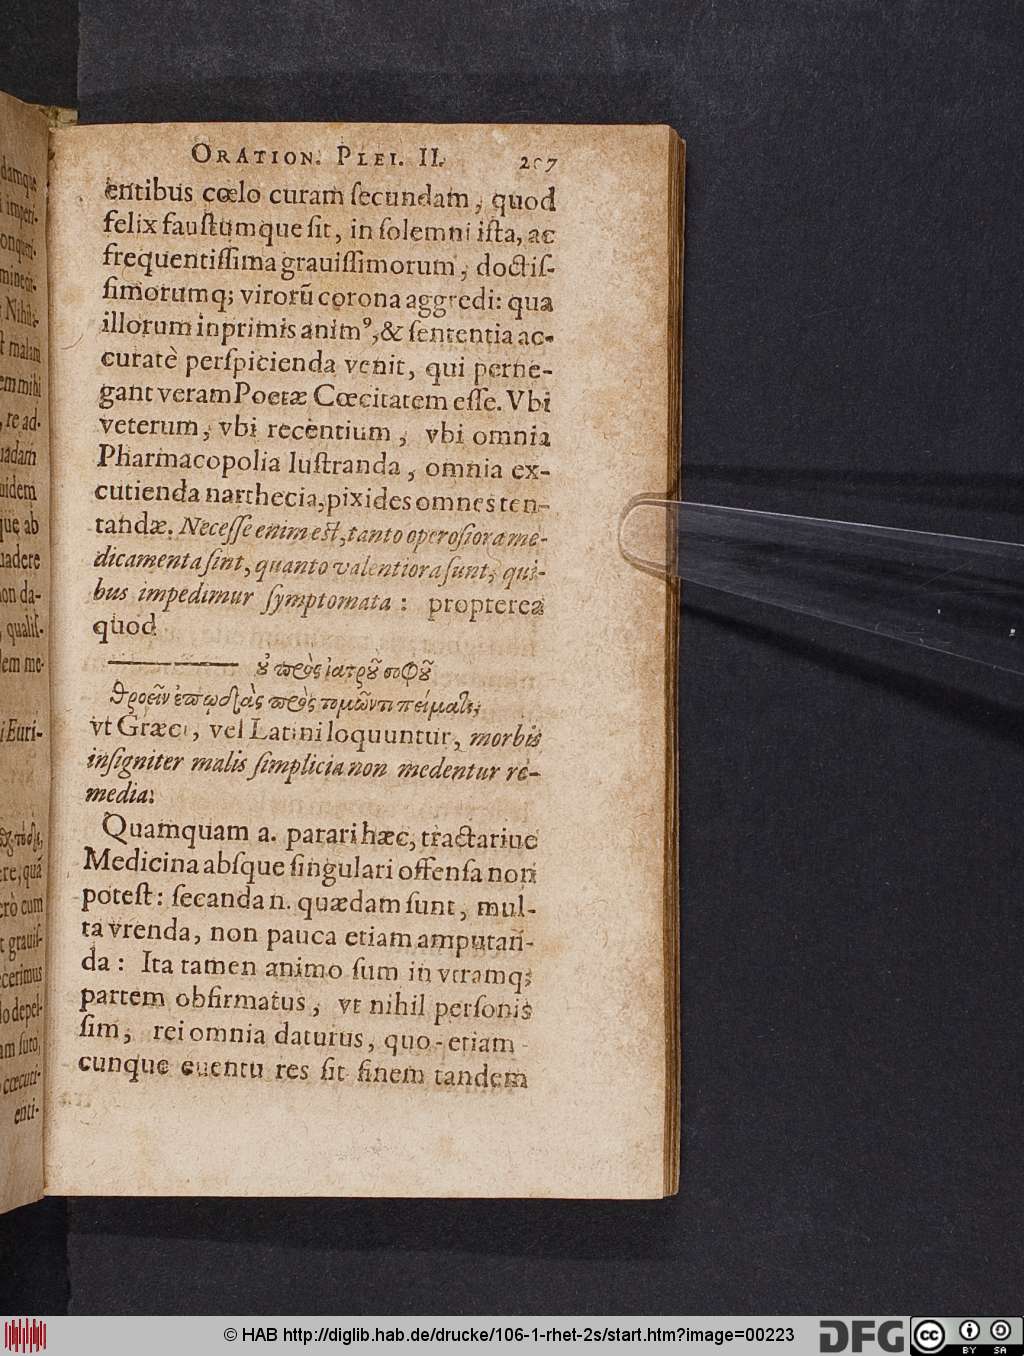 damque
imperi-
onqueri-
mineer-
Nihil a-
t malam
em mihi
, re ad-
uadam
uidem
que ab
uadere
on da-
, qualis-
dem me-
i Euri-
ere, quã
erò cum
t grauiſ-
cerimus
lo depel-
am ſuto,
cœcuti-
enti-
ORATION. PLEI. II. 207
entibus cœlo curam ſecundam, quod
felix fauſtumque ſit, in ſolemni iſta, ac
frequentiſſima grauiſſimorum, doctiſ-
ſimorumq; virorũ corona aggredi: qua
illorum inprimis animꝰ, & ſententia ac-
curatè perſpicienda venit, qui perne-
gant veram Poetæ Cœcitatem eſſe. Vbi
veterum, vbi recentium, vbi omnia
Pharmacopolia luſtranda, omnia ex-
cutienda narthecia, pixides omnes ten-
tandæ. Neceſſe enim est, tanto operoſiora me-
dicamenta ſint, quanto valentiora ſunt, qui-
bus impedimur ſymptomata: propterea
quod
οὐ πρὸς ἰατροῦ σοφοῦ
θροεῖν ἐπῳδὰς πρὸς τομῶντι πήματι,
vt Græci, vel Latini loquuntur, morbis
inſigniter malis ſimplicia non medentur re-
media.
Quamquam a. parari hæc, tractariue
Medicina abſque ſingulari offenſa non
poteſt: ſecanda n. quædam ſunt, mul-
ta vrenda, non pauca etiam amputan-
da: Ita tamen animo ſum in vtramq;
partem obfirmatus, vt nihil perſonis
ſim, rei omnia daturus, quo-etiam-
cunque euentu res ſit finem tandem
© HAB http://diglib.hab.de/drucke/106-1-rhet-2s/start.htm?image=00223
DFG
cc
BY SA